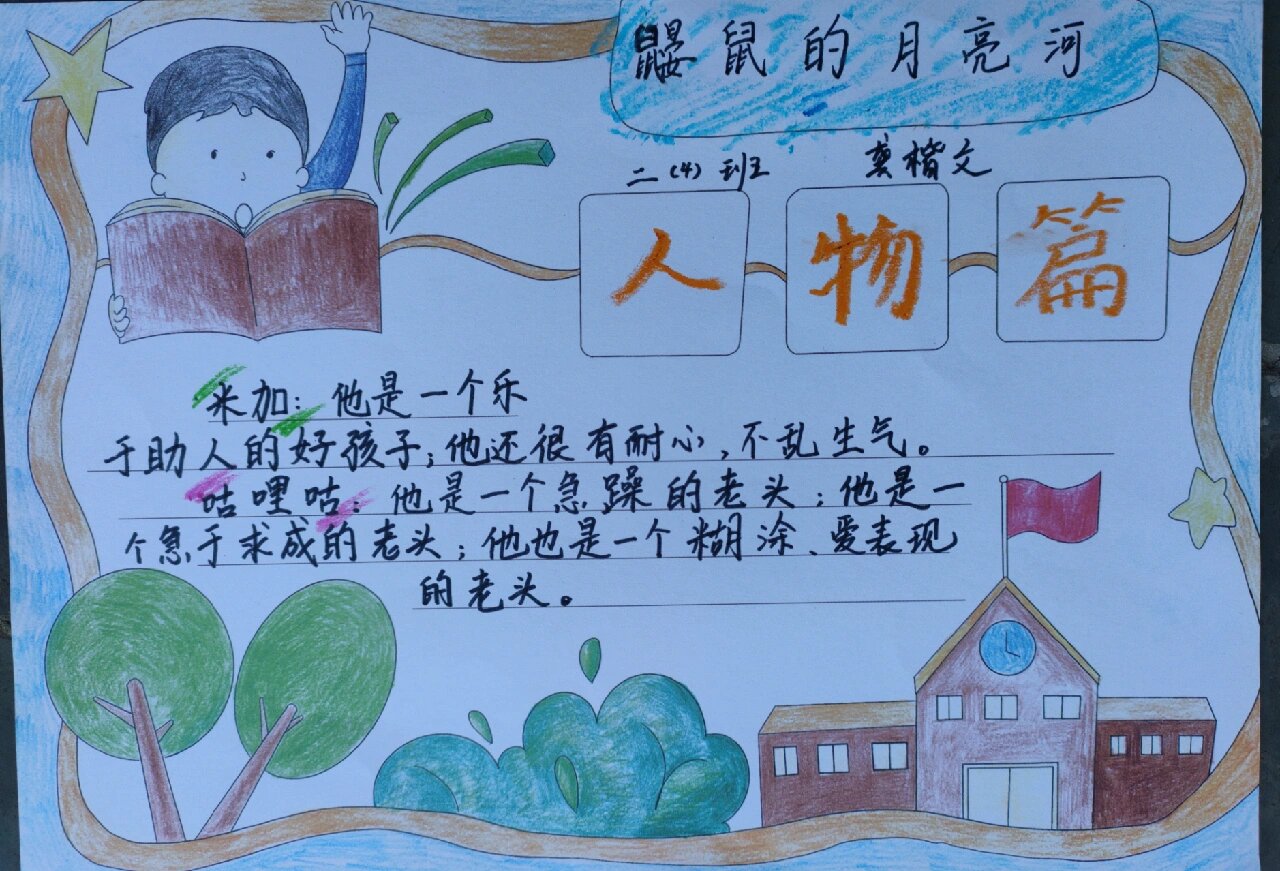 鼹鼠的月亮河
二（4）班 龚楷文
人物篇
米加：他是一个乐
于助人的好孩子；他还很有耐心，不乱生气。
咕哩咕：他是一个急躁的老头；他是一
个急于求成的老头；他也是一个糊涂、爱表现
的老头。